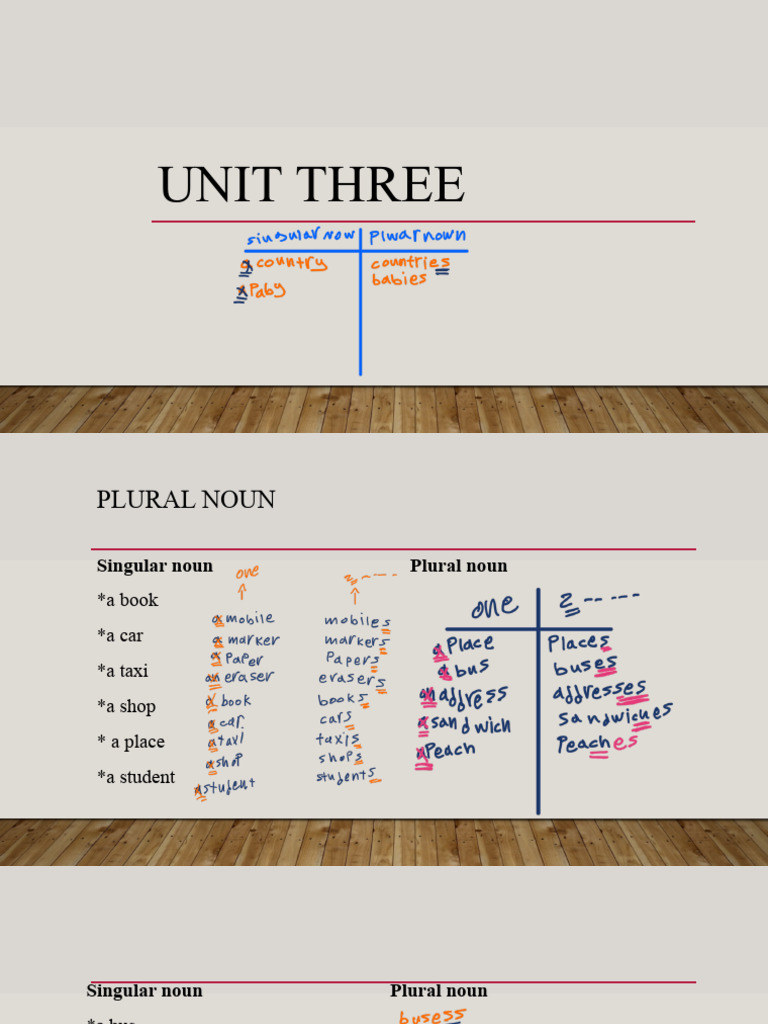 UNIT THREE
singular now | Plwar nown
a country | countries
a Paby | babies
PLURAL NOUN
Singular noun one 2 ---- Plural noun
*a book
*a car
*a taxi
*a shop
* a place
*a student
a mobile mobiles
a marker markers
a PaPer PaPers
an eraser erasers
a book books
a car. cars
a taxi taxis
a shop shops
a student students
one | 2 -- -- --
a Place | Places
a bus | buses
an address | addresses
a sandwich | sandwiches
a Peach | Peaches
Singular noun Plural noun
*a bus busess